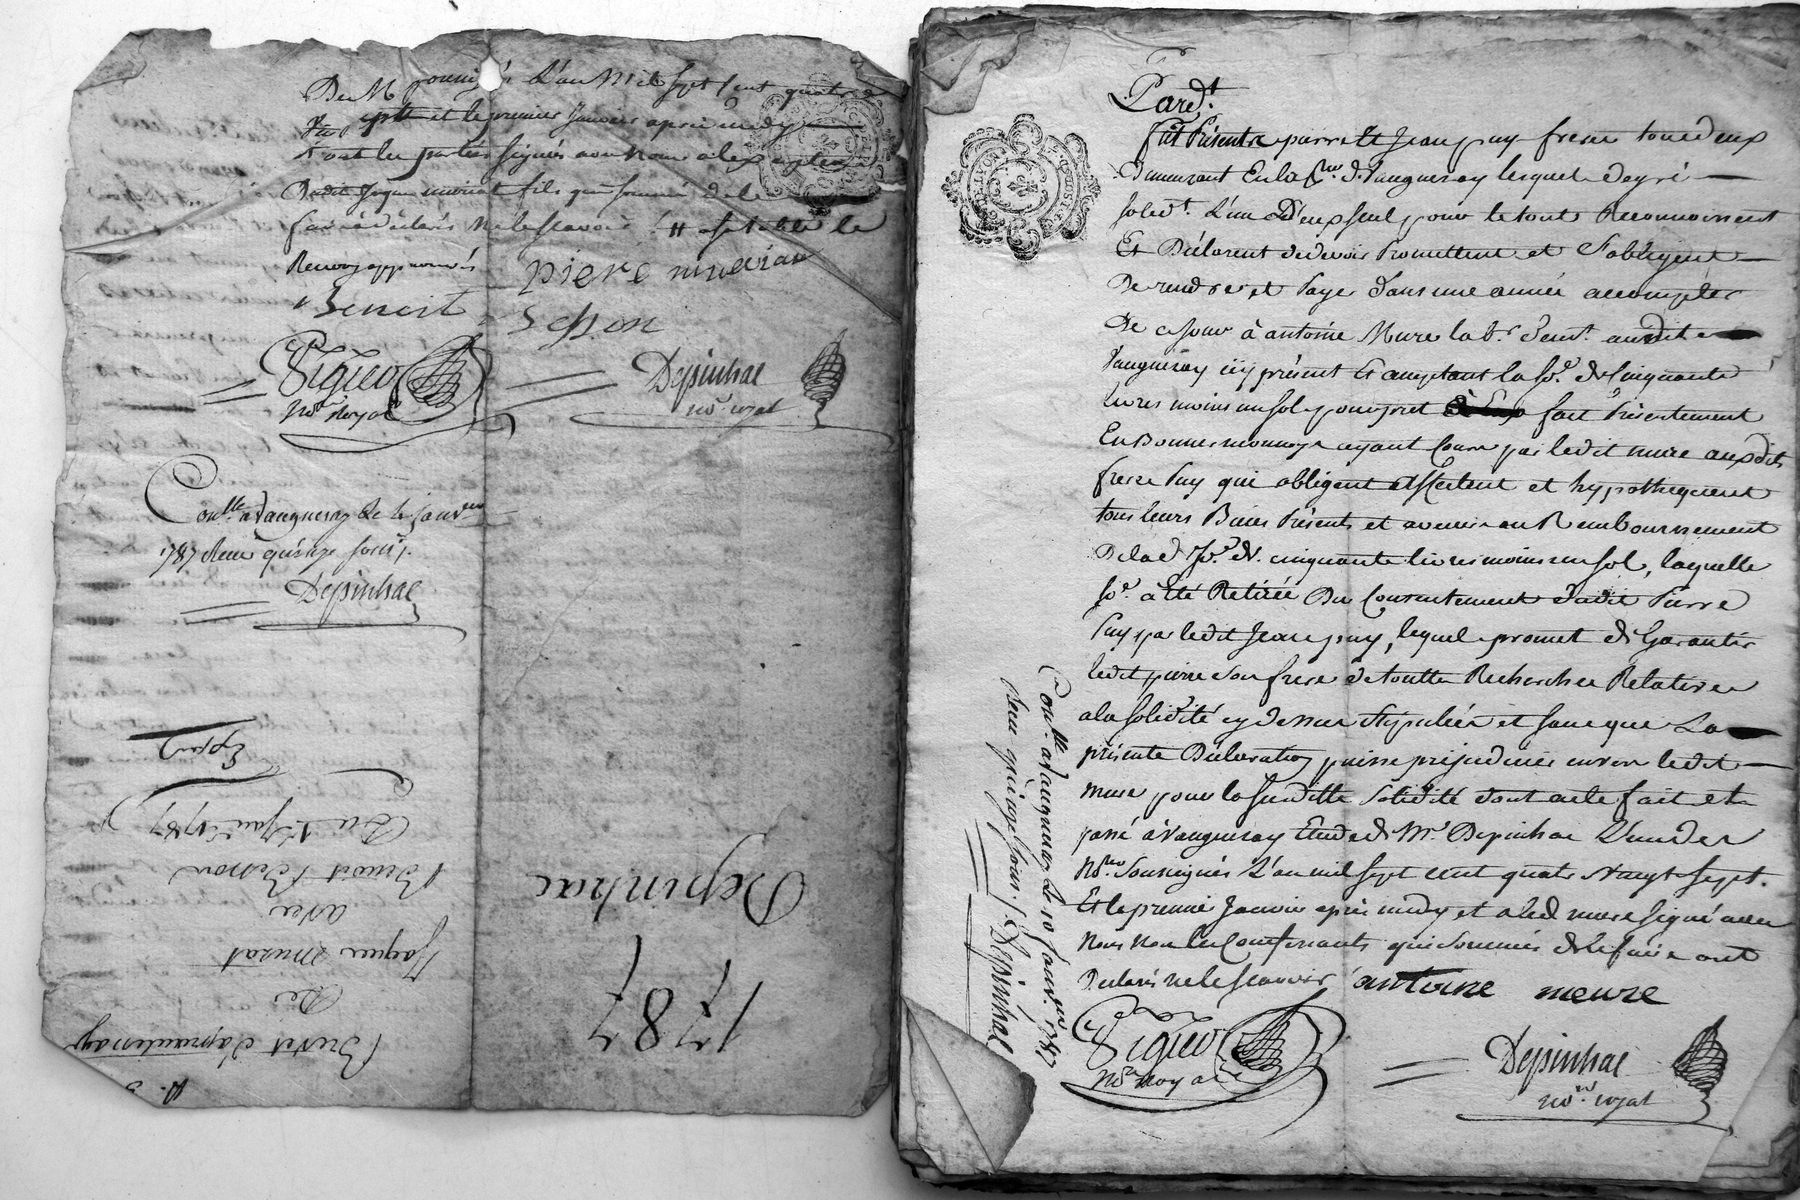 De M soussignés L'an Mil sept cent quatre
sept et le premier Janvier après midy
et ont les parties signés avec nous
dudit Jaque murat fils que sommé de le
faire a déclaré ne le scavoir
Renvoy approuvés piere muriau
Benoit Besson
Vigier Depinhac
nore Royal nore royal
Conllé à Vaugneray le 1er janver
1787 Reçu quinze sous
Depinhac
Expée
Du 1er Janer 1787
Benoit Besson
avec
Jaque Murat
De
Brevet d'aprantissage
Depinhac
1787
Pardt
fut Présents pierre et Jean puy frere tous deux
demeurant En la Psse de Vaugneray lesquels de gré
solidt L'un D'eux seul pour le tout Reconnoissent
Et Déclarent de devoir Promettent et S'obligent
De rendre et Payer dans une année accomplie
De ce jour à antoine Mure labr demt audit
Vaugneray icy présent Et acceptant la Se de Cinquante
livres moins un sol pour pret fait Présentement
En bonne monnoye ayant Cours par ledit mure auxdits
frere Puy qui obligent affectent et hypothequent
tous leurs Biens Présents et avenir au Remboursement
De lad. Se de cinquante livres moins un sol, laquelle
Se à été Retirée Du Consentement dudit Pierre
Puy par ledit Jean puy, lequel promet de Garantir
ledit pierre son frere de toutte Recherches Relatives
a la solidité cy dessus Stipulée et sans que La
présente Déclaration puisse préjudicier envers ledit
mure pour la susditte Solidité dont acte fait et
passé à Vaugneray Etude de Me Depinhac L'un des
Nores Soussignés L'an mil sept cent quatre vingt sept.
Et le premier Janvier après midy et a led. mure signé avec
Nous non les Confessants qui sommés de le faire ont
Déclarés ne le scavoir antoine meure
Vigier Depinhac
nore Royal nore royal
Conllé à Vaugneray le 10 janver 1787
Reçu quinze sous Depinhac